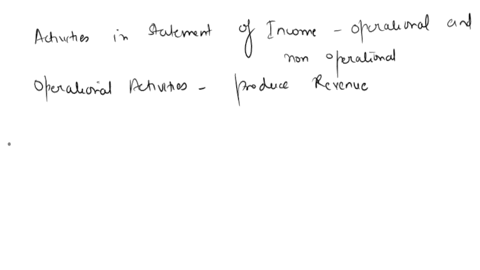 Activities in Statement of Income - operational and
non operational
Operational Activities - produce Revenue